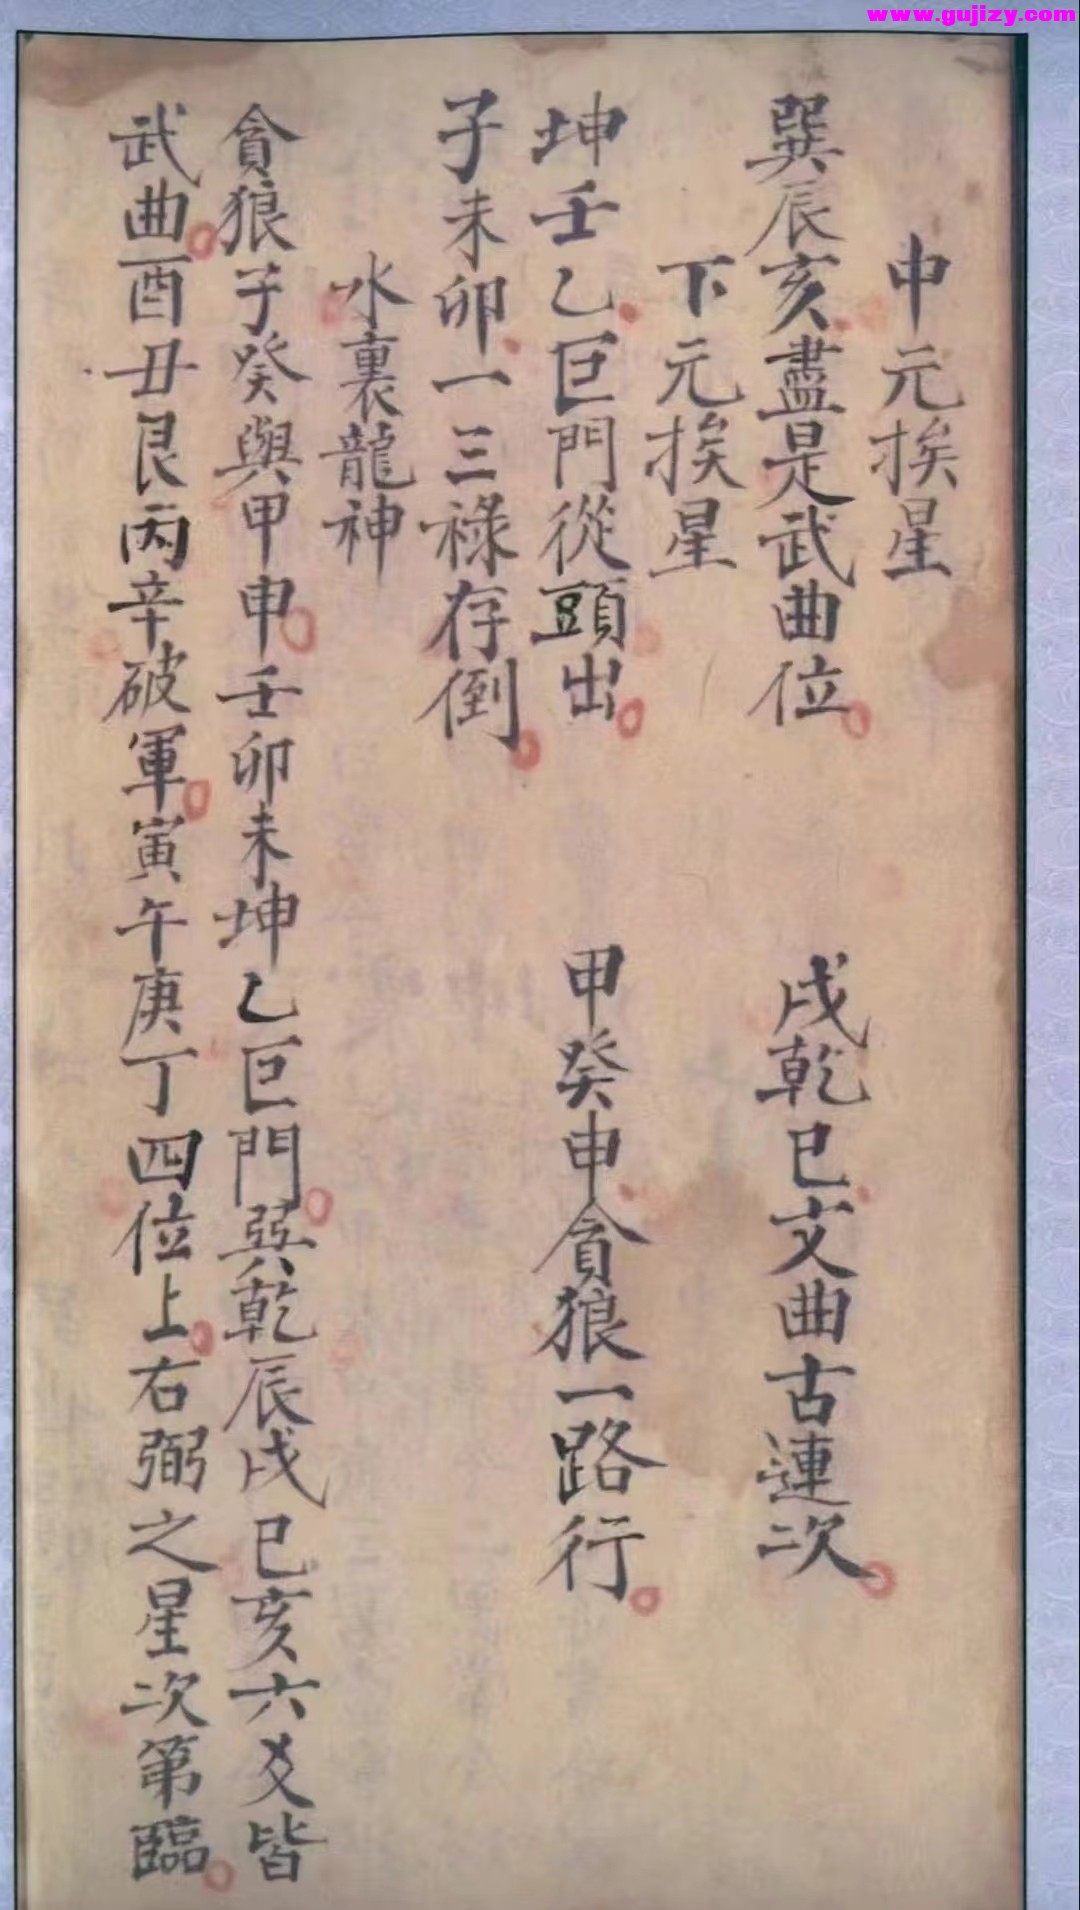 www.gujizy.com
中元挨星
巽辰亥盡是武曲位 戌乾巳文曲古連次
下元挨星
坤壬乙巨門從頭出 甲癸申貪狼一路行
子未卯一三祿存倒
水裏龍神
貪狼子癸與甲申壬卯未坤乙巨門巽乾辰戌巳亥六爻皆
武曲酉丑艮丙辛破軍寅午庚丁四位上右弼之星次第臨